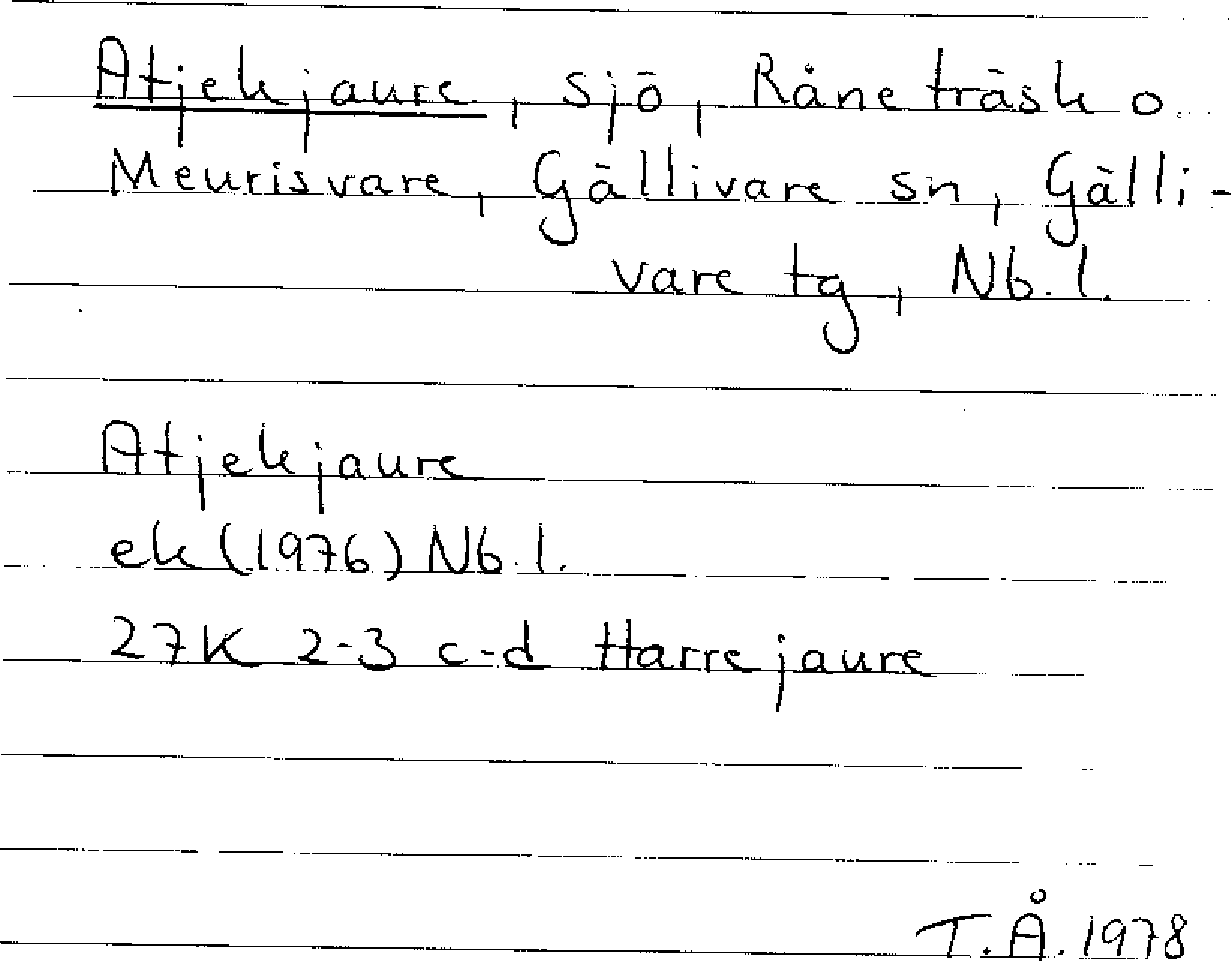 Atjekjaure, sjö, Råneträsk o.
Meurisvare, Gällivare sn, Gälli-
vare tg, Nb.l.
Atjekjaure
ek(1976) Nb.l.
27K 2-3 c-d Harrejaure
T.Å. 1978